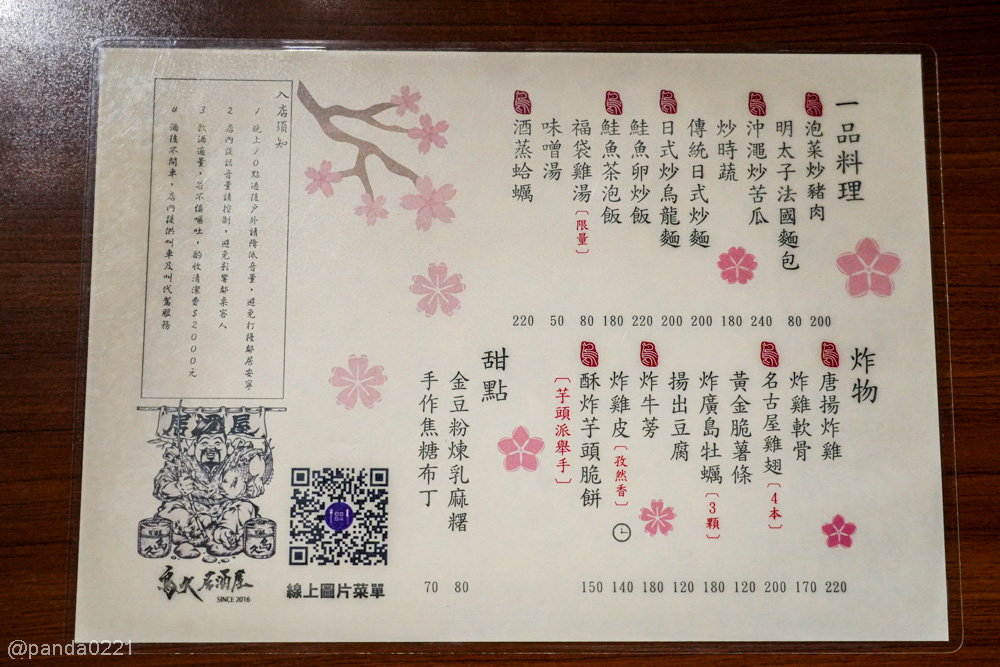 一品料理
泡菜炒豬肉 200
明太子法國麵包 80
沖繩炒苦瓜 240
炒時蔬 180
傳統日式炒麵 200
日式炒烏龍麵 200
鮭魚卵炒飯 220
鮭魚茶泡飯 180
福袋雞湯〔限量〕 80
味噌湯 50
酒蒸蛤蠣 220
炸物
唐揚炸雞 220
炸雞軟骨 170
名古屋雞翅〔4本〕 200
黃金脆薯條 120
炸廣島牡蠣〔3顆〕 180
揚出豆腐 120
炸牛蒡 180
炸雞皮〔孜然香〕 140
酥炸芋頭脆餅 150
〔芋頭派舉手〕
甜點
金豆粉煉乳麻糬 80
手作焦糖布丁 70
入店須知
1 晚上10點過後戶外請降低音量，避免打擾鄰居安寧
2 店內談話音量請控制，避免影響鄰桌客人
3 飲酒過量，若不慎嘔吐，酌收清潔費$2000元
4 酒後不開車，店內提供叫車及叫代駕服務
居酒屋
居酒屋
SINCE 2016
線上圖片菜單
@panda0221